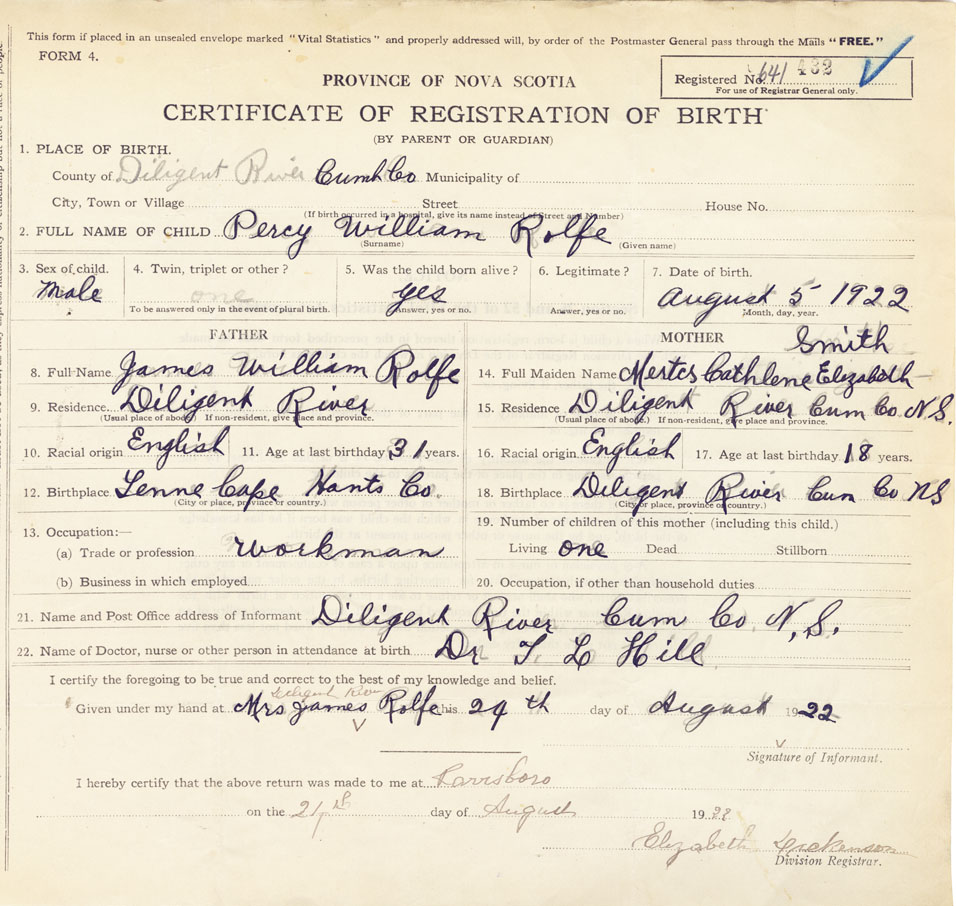 This form if placed in an unsealed envelope marked "Vital Statistics" and properly addressed will, by order of the Postmaster General pass through the Mails "FREE."
FORM 4.
PROVINCE OF NOVA SCOTIA
Registered No. 641 482
For use of Registrar General only.
CERTIFICATE OF REGISTRATION OF BIRTH
(BY PARENT OR GUARDIAN)
1. PLACE OF BIRTH.
County of Diligent River Cumb Co Municipality of
City, Town or Village Street House No.
(If birth occurred in a hospital, give its name instead of Street and Number)
2. FULL NAME OF CHILD Percy William Rolfe
(Surname) (Given name)
3. Sex of child. 4. Twin, triplet or other? 5. Was the child born alive? 6. Legitimate? 7. Date of birth.
Male one yes August 5 1922
To be answered only in the event of plural birth. Answer, yes or no. Answer, yes or no. Month, day, year.
FATHER MOTHER Smith
8. Full Name James William Rolfe 14. Full Maiden Name Mertes Cathlene Elizabeth
9. Residence Diligent River 15. Residence Diligent River Cum Co. N.S.
(Usual place of abode.) If non-resident, give place and province. (Usual place of abode.) If non-resident, give place and province.
10. Racial origin English 11. Age at last birthday 31 years. 16. Racial origin English 17. Age at last birthday 18 years.
12. Birthplace Tenne Cape Hants Co. 18. Birthplace Diligent River Cum Co NS
(City or place, province or country.) (City or place, province or country.)
13. Occupation:— 19. Number of children of this mother (including this child.)
(a) Trade or profession workman Living one Dead Stillborn
(b) Business in which employed 20. Occupation, if other than household duties
21. Name and Post Office address of Informant Diligent River Cum Co. N.S.
22. Name of Doctor, nurse or other person in attendance at birth Dr T. L Hill
I certify the foregoing to be true and correct to the best of my knowledge and belief.
Diligent River
Given under my hand at Mrs James Rolfe this 29 th day of August 1922
Signature of Informant.
I hereby certify that the above return was made to me at Parrsboro
on the day of August 1922
Elizabeth Dickenson
Division Registrar.